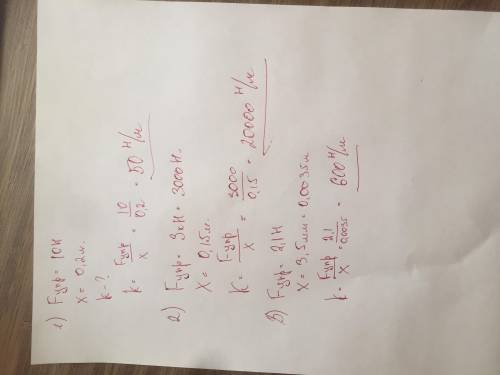 1) Fупр = 10Н
x = 0,2м.
k - ?
k = Fупр / x = 10 / 0,2 = 50 Н/м
2) Fупр = 3кН = 3000 Н.
x = 0,15м.
K = Fупр / x = 3000 / 0,15 = 20000 Н/м
3) Fупр = 2,1Н
x = 3,5мм = 0,0035м.
k = Fупр / x = 2,1 / 0,0035 = 600 Н/м